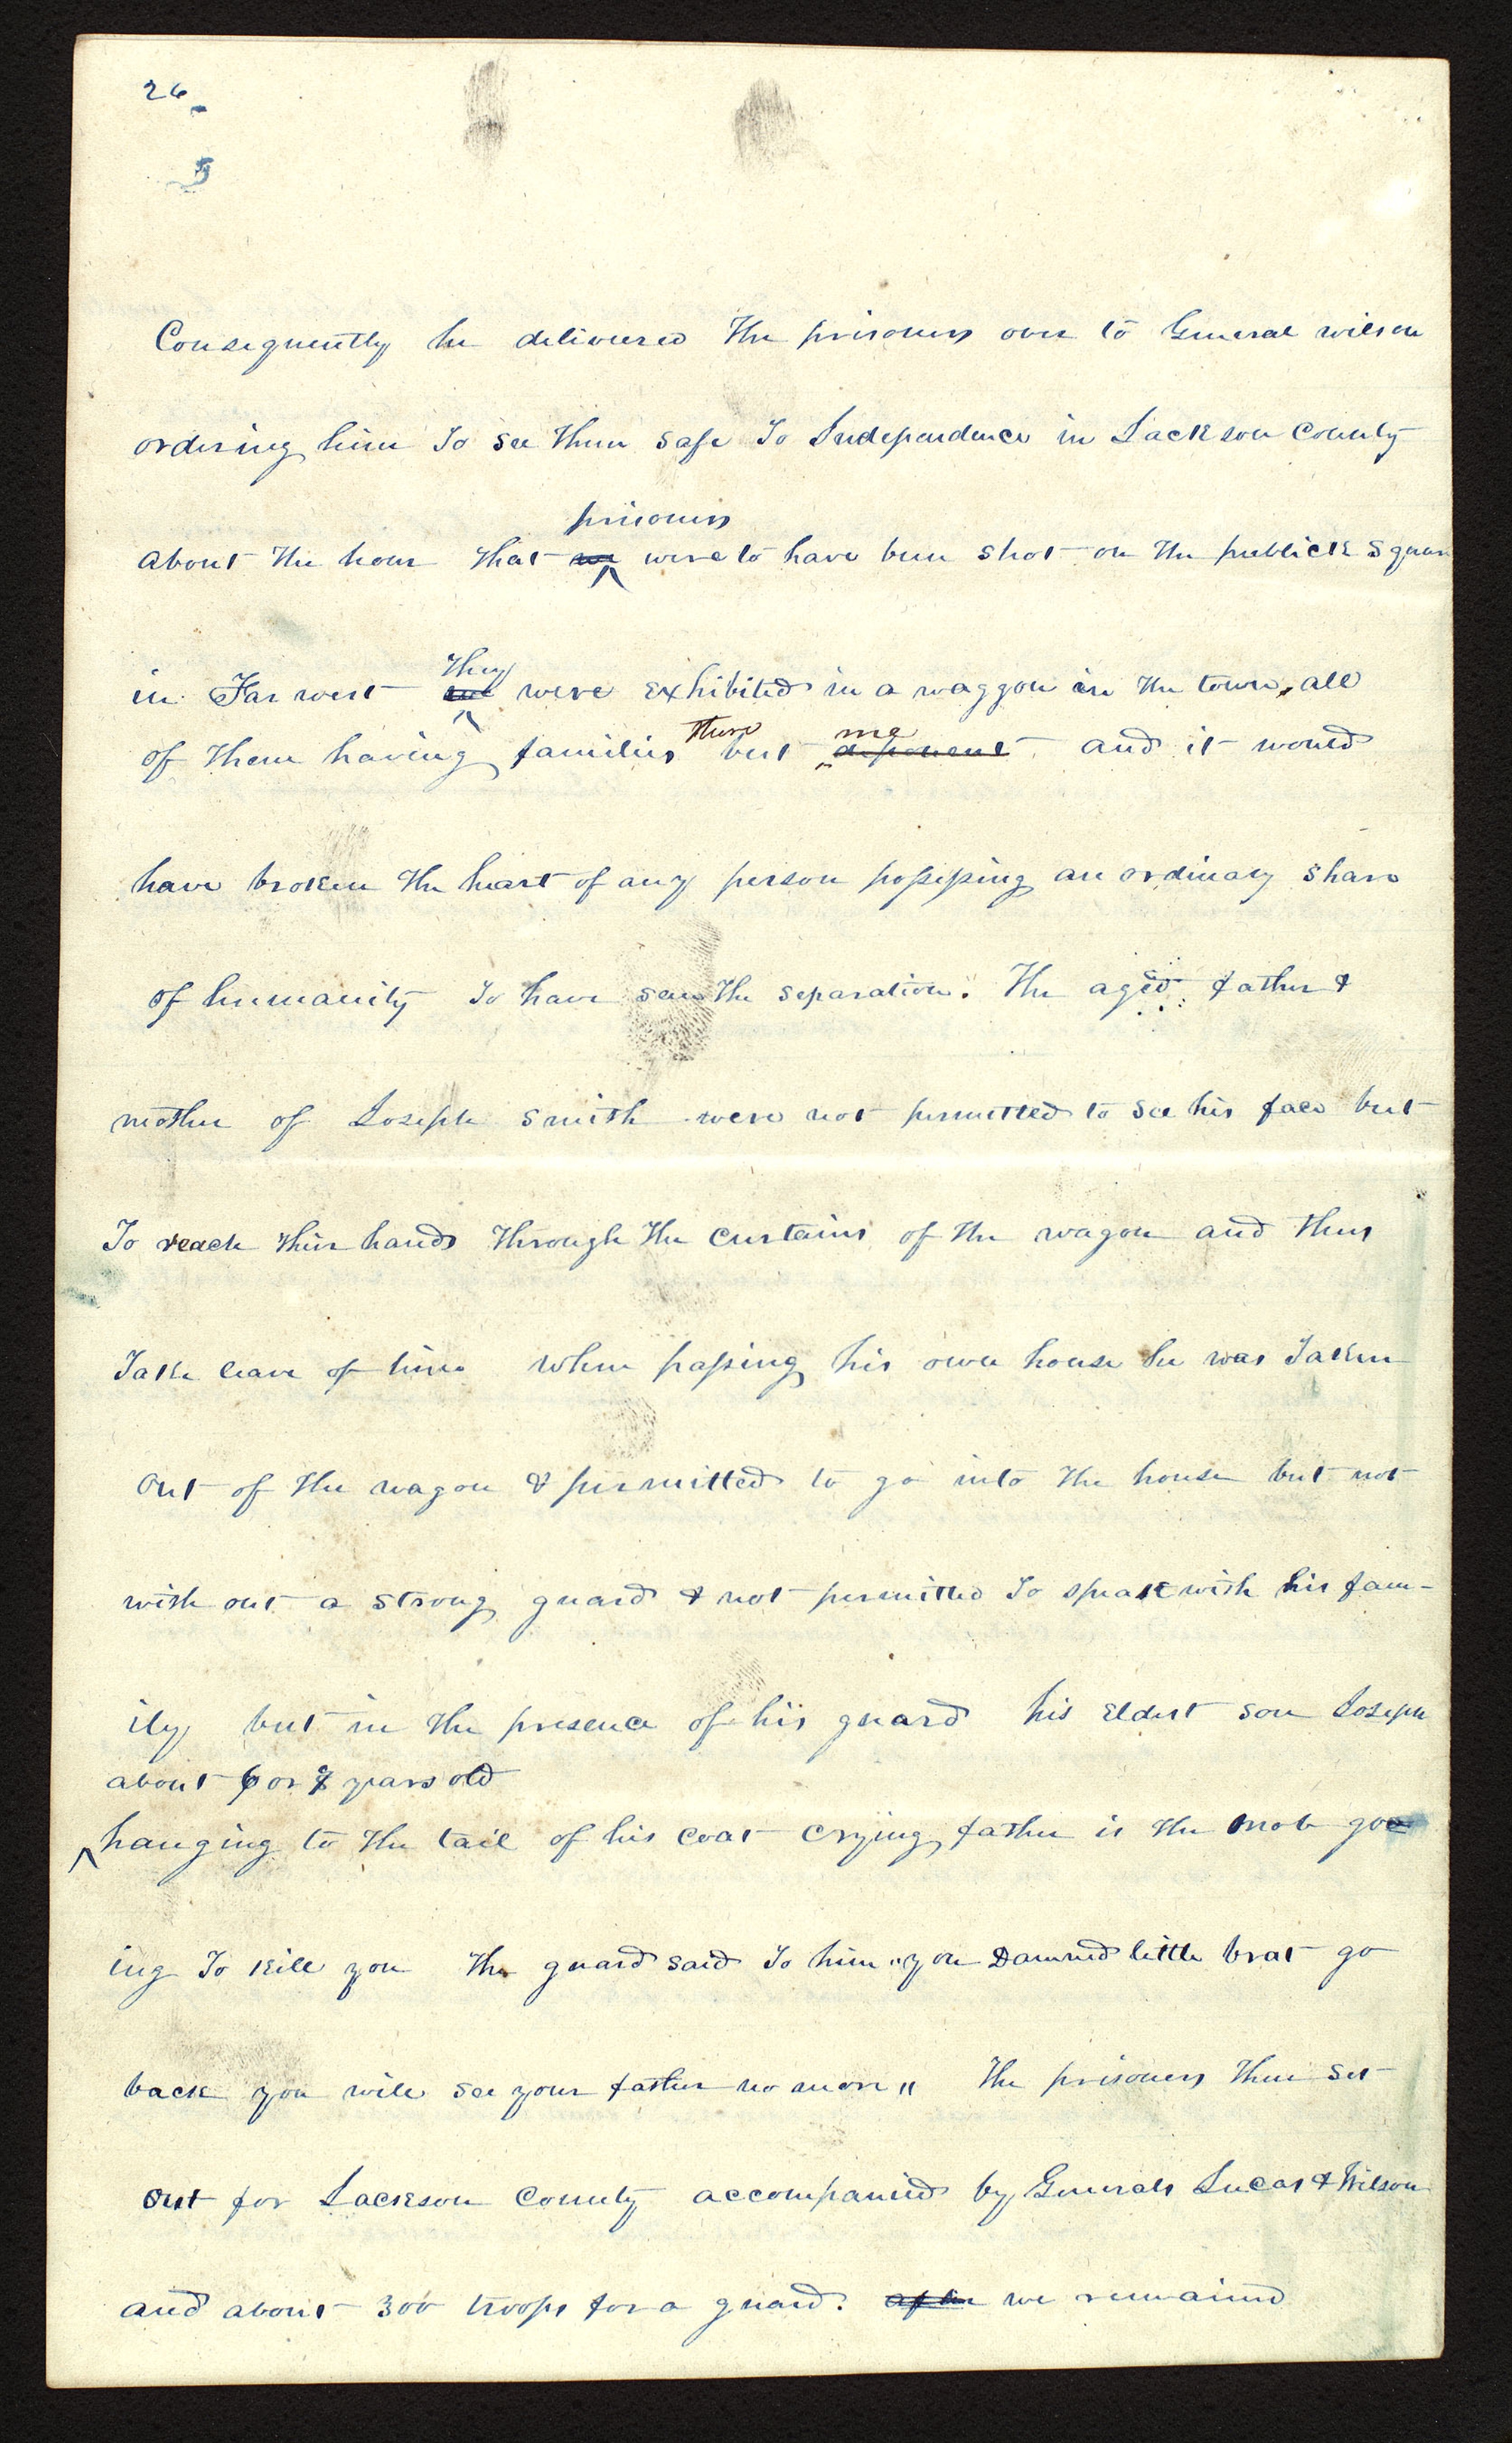 26
Consequently he delivered the prisoners over to General wilson
ordering him to see them safe to Independence in Jackson County
prisoners
about the hour that we were to have been shot on the publick square
they
in Far west we were exhibited in a waggon in the town, all
there me
of them having families but deponent and it would
have broken the heart of any person possessing an ordinary share
of humanity to have seen the separation. The aged father &
mother of Joseph smith were not permitted to see his face but
To reach their hands through the curtains of the wagon and thus
Take leave of him. When passing his own house he was taken
out of the wagon & permitted to go into the house but not
with out a strong guard & not permitted to speak with his fam-
ily but in the presence of his guard his eldest son Joseph
about 6 or 8 years old
hanging to the tail of his coat crying father is the mob go
ing to kill you The guard said to him "you Damned little brat go
back you will see your father no more" The prisoners then set
out for Jackson County accompanied by Generals Lucas & Wilson
and about 300 troops for a guard. after we remained